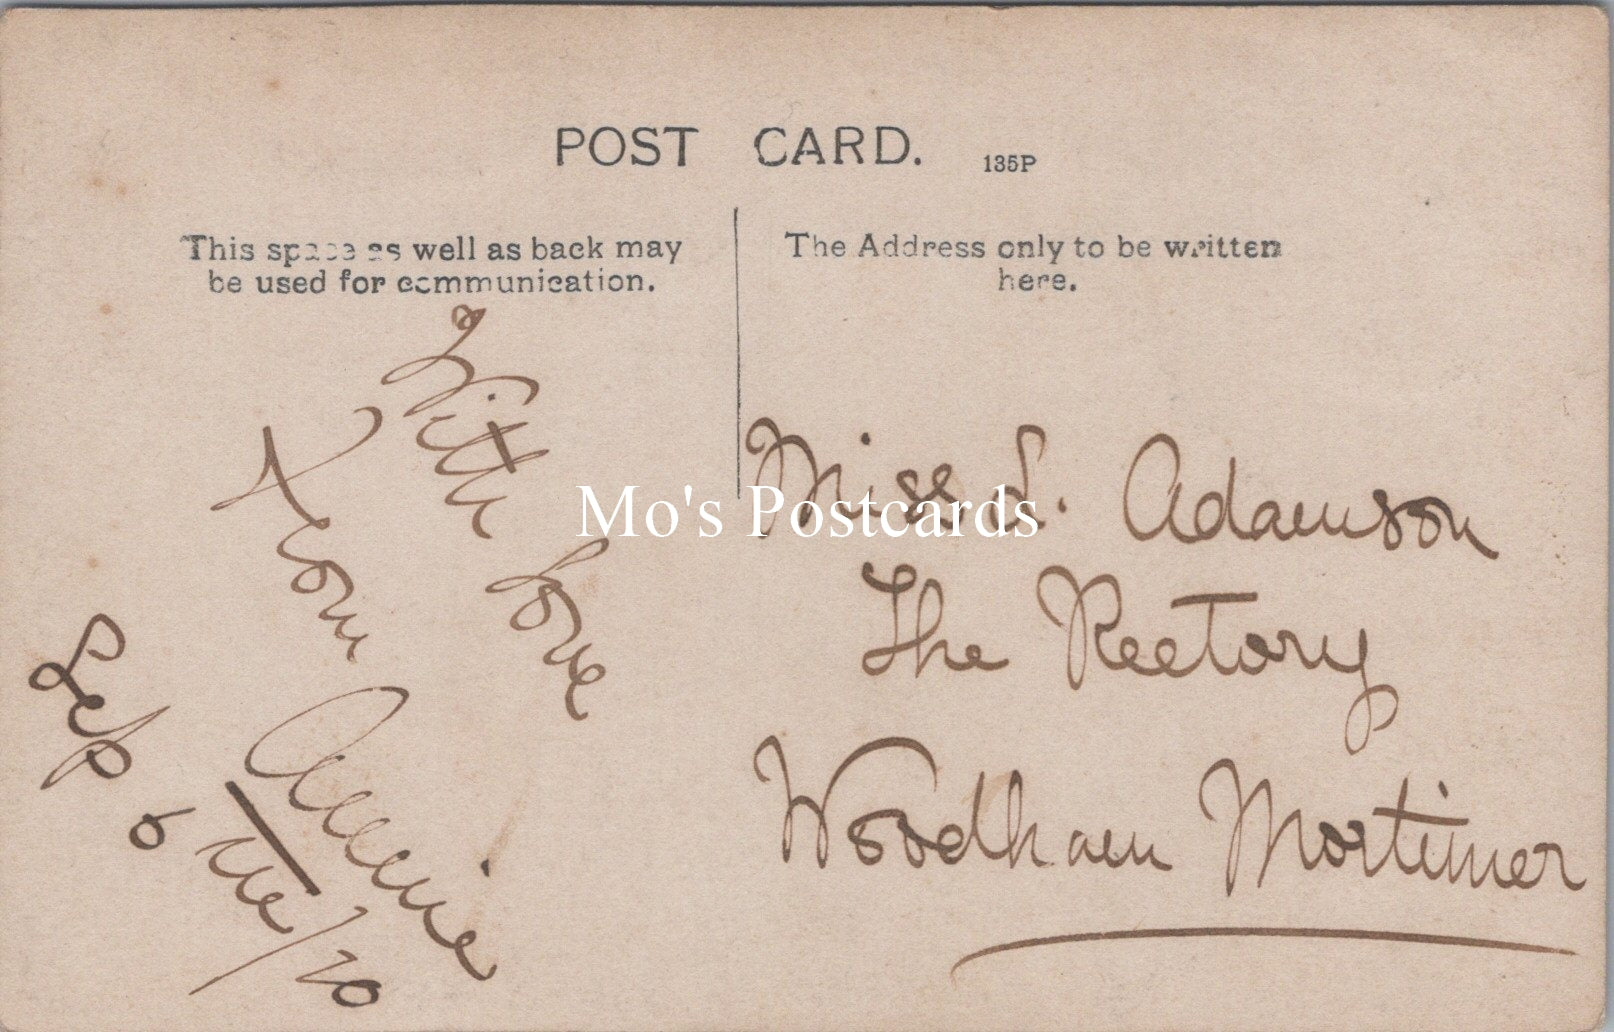 POST CARD. 135P
This space as well as back may
be used for communication.
The Address only to be written
here.
With love
from
Annie
Sep 6 /20
Miss L. Adamson
The Rectory
Woodham Mortimer
Mo's Postcards